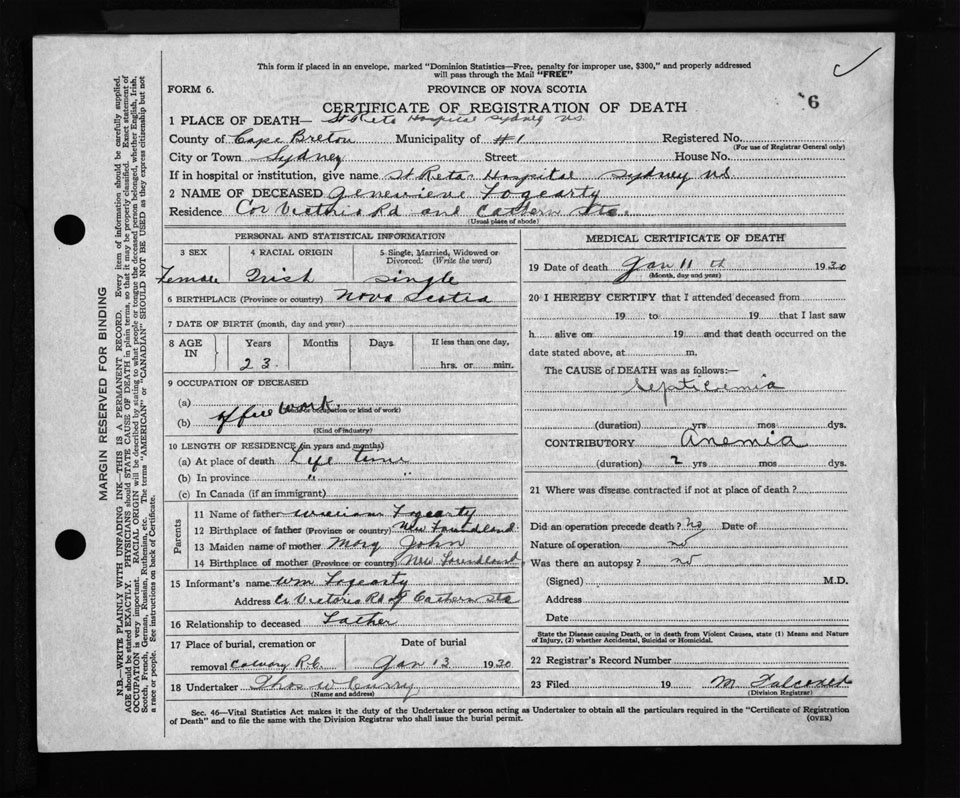 This form if placed in an envelope, marked "Dominion Statistics—Free, penalty for improper use, $300," and properly addressed
will pass through the Mail "FREE"
FORM 6.
PROVINCE OF NOVA SCOTIA
6
CERTIFICATE OF REGISTRATION OF DEATH
1 PLACE OF DEATH— St Reta Hospital Sydney N.S.
County of Cape Breton Municipality of #1 Registered No.
(For use of Registrar General only)
City or Town Sydney Street House No.
If in hospital or institution, give name St Reta Hospital Sydney N.S.
2 NAME OF DECEASED Genevieve Fogearty
Residence Cor Victoria Rd and Eathern Sts.
(Usual place of abode)
PERSONAL AND STATISTICAL INFORMATION
3 SEX 4 RACIAL ORIGIN 5 Single, Married, Widowed or
Divorced: (Write the word)
Female Irish Single
6 BIRTHPLACE (Province or country) Nova Scotia
7 DATE OF BIRTH (month, day and year)
8 AGE IN Years Months Days If less than one day,
23 hrs. or min.
9 OCCUPATION OF DECEASED
(a) office work
(Kind of occupation or kind of work)
(b)
(Kind of industry)
10 LENGTH OF RESIDENCE (in years and months)
(a) At place of death Life time
(b) In province " "
(c) In Canada (if an immigrant)
Parents
11 Name of father William Fogearty
12 Birthplace of father (Province or country) New Foundland
13 Maiden name of mother Mary John
14 Birthplace of mother (Province or country) New Foundland
15 Informant's name Wm Fogearty
Address Cr Victoria Rd & Eathern Sts
16 Relationship to deceased Father
17 Place of burial, cremation or Date of burial
removal Calvary R.C. Jan 13 1930
18 Undertaker Thos W Curry
(Name and address)
MEDICAL CERTIFICATE OF DEATH
19 Date of death Jan 11 th 1930
(Month, day and year)
20 I HEREBY CERTIFY that I attended deceased from
19 to 19 that I last saw
h alive on 19 and that death occurred on the
date stated above, at m.
The CAUSE of DEATH was as follows:—
Septicemia
(duration) yrs mos dys.
CONTRIBUTORY Anemia
(duration) 2 yrs mos dys.
21 Where was disease contracted if not at place of death?
Did an operation precede death? no Date of
Nature of operation no
Was there an autopsy? no
(Signed) M.D.
Address
Date
State the Disease causing Death, or in death from Violent Causes, state (1) Means and Nature
of Injury, (2) whether Accidental, Suicidal or Homicidal.
22 Registrar's Record Number
23 Filed 19 M
(Division Registrar)
Sec. 46—Vital Statistics Act makes it the duty of the Undertaker or person acting as Undertaker to obtain all the particulars required in the "Certificate of Registration
of Death" and to file the same with the Division Registrar who shall issue the burial permit.
(OVER)
MARGIN RESERVED FOR BINDING
N.B.—WRITE PLAINLY WITH UNFADING INK—THIS IS A PERMANENT RECORD. Every item of information should be carefully supplied.
AGE should be stated EXACTLY. PHYSICIANS should STATE CAUSE OF DEATH in plain terms, so that it may be properly classified. Exact statement of
OCCUPATION is very important. RACIAL ORIGIN will be described by stating to what people or tongue the deceased person belonged, whether English, Irish,
Scotch, French, German, Russian, Ruthenian, etc. The terms "AMERICAN" or "CANADIAN" SHOULD NOT BE USED as they express citizenship but not
a race or people. See instructions on back of Certificate.